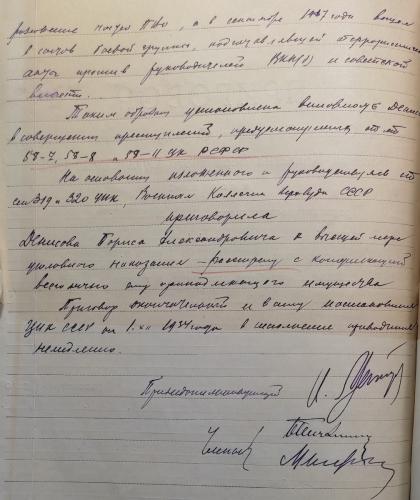 ряжение постов ПВО, а в сентябре 1937 года вошел
в состав боевой группы, подготавливавшей террористические
акты против руководителей ВКП(б) и советской
власти.
Таким образом установлена виновность Денисова
в совершении преступлений, предусмотренных ст.ст.
58-7, 58-8 и 58-11 УК РСФСР
На основании изложенного и руководствуясь ст.
ст. 319 и 320 УПК, Военная Коллегия Верхсуда СССР
приговорила
Денисова Бориса Александровича к высшей мере
уголовного наказания – расстрелу с конфискацией
всего лично ему принадлежащего имущества
Приговор окончательный и в силу постановления
ЦИК СССР от 1.XII 1934 года в исполнение приводится
немедленно.
Председательствующий
Члены